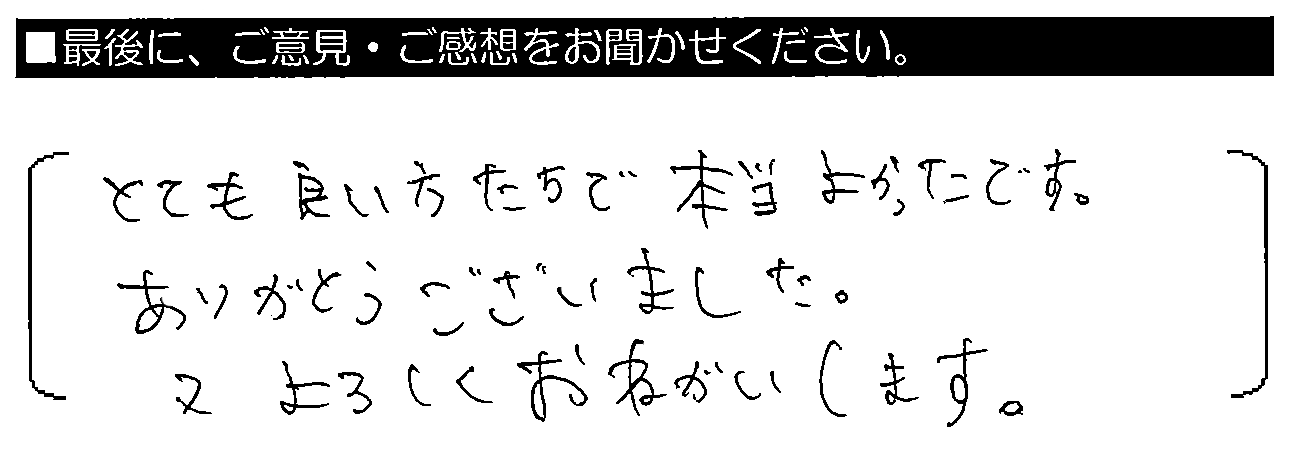 ■最後に、ご意見・ご感想をお聞かせください。
とても良い方たちで本当よかったです。
ありがとうございました。
又よろしくおねがいします。